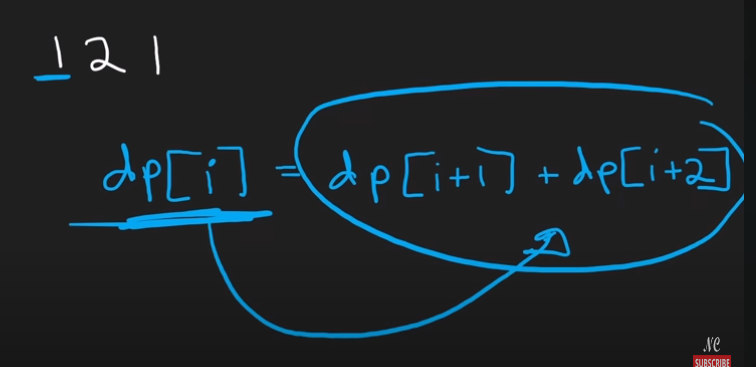 1 2 1
dp[i] = dp[i+1] + dp[i+2]
NC
SUBSCRIBE